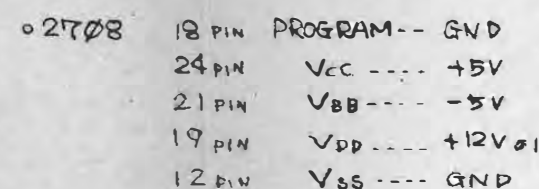 o 27Ø8 18 PIN PROGRAM-- GND
24 PIN VCC ---- +5V
21 PIN VBB ---- -5V
19 PIN VDD ---- +12V ø1
12 PIN VSS ---- GND